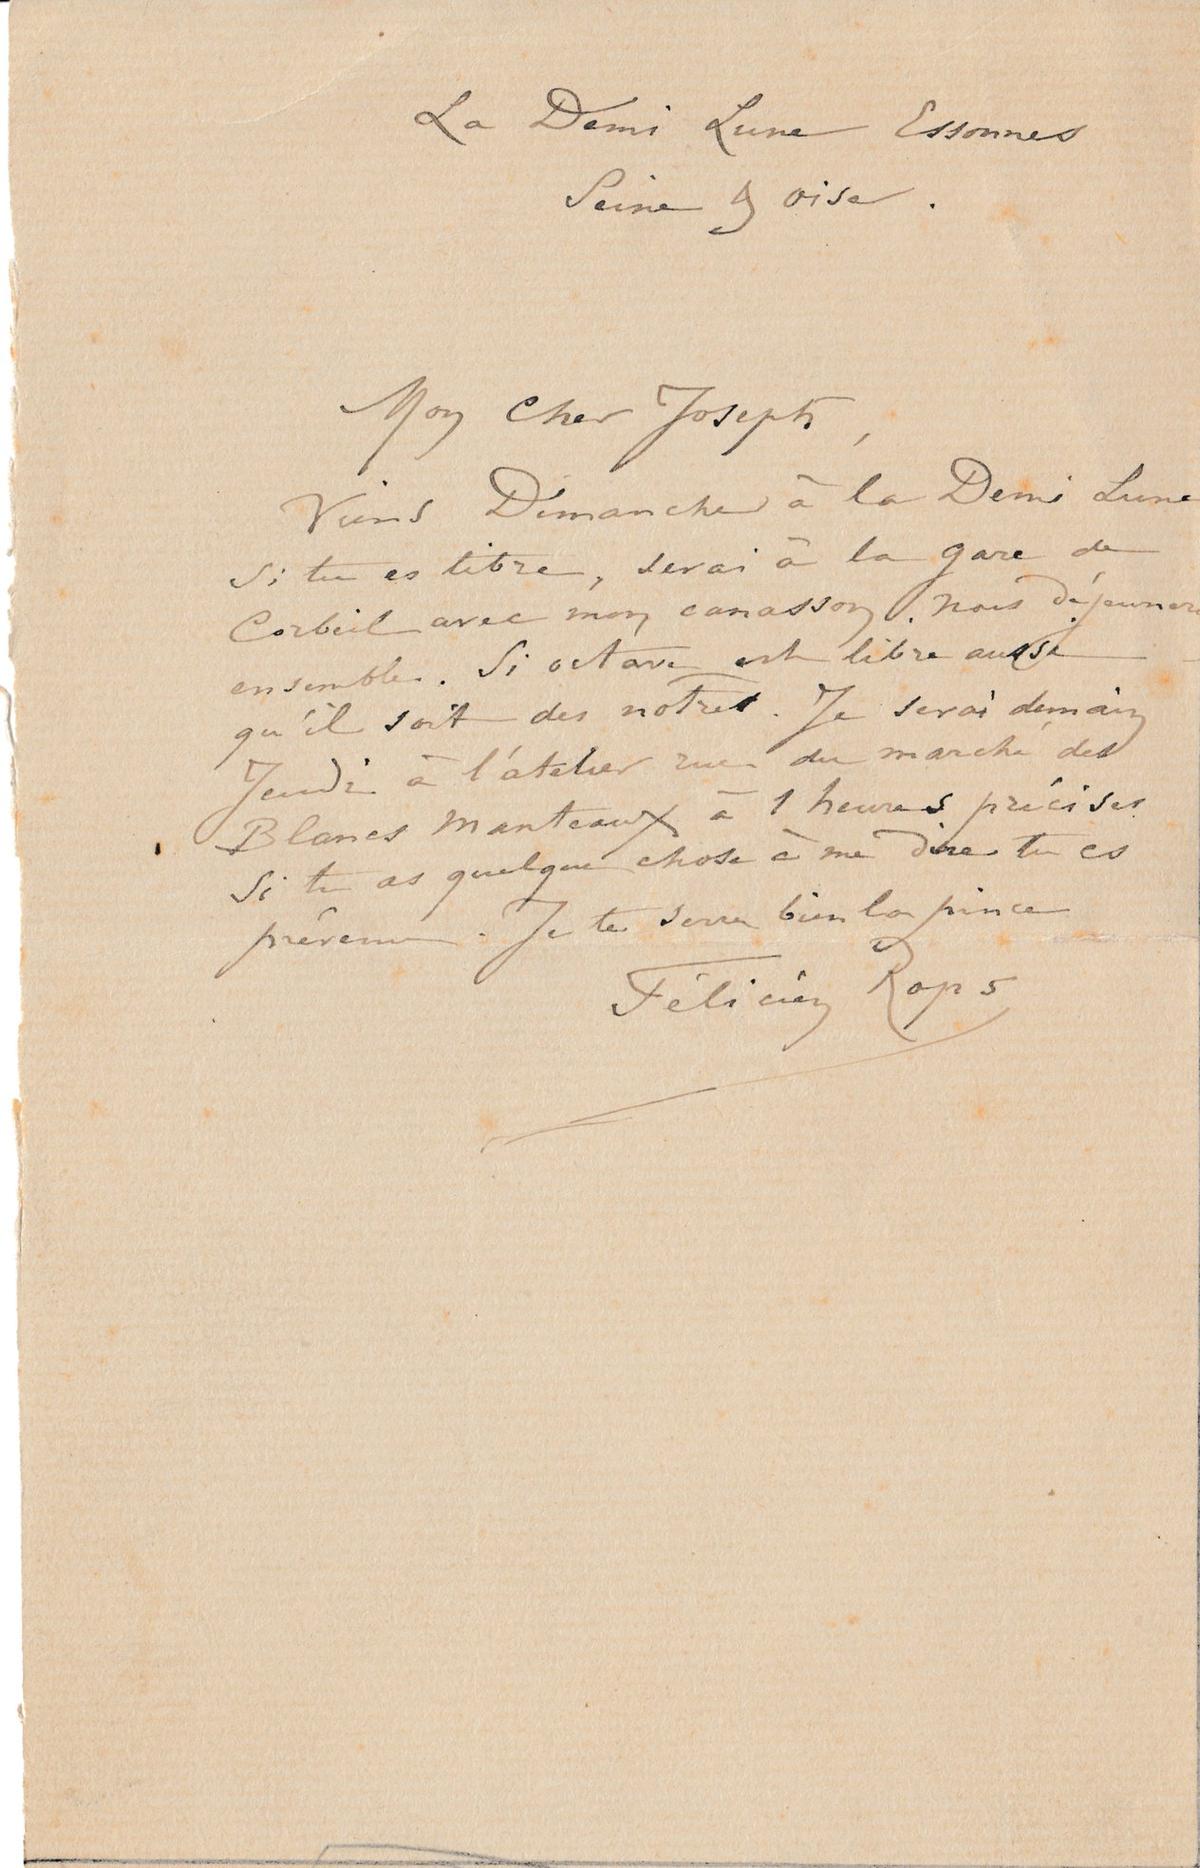 La Demi Lune Essonnes
Seine & oise.
Mon cher Joseph,
Viens Dimanche à la Demi Lune
Si tu es libre, serai à la gare de
Corbeil avec mon canasson. nous déjeuner
ensemble. Si octave est libre aussi
qu'il soit des notres. Je serai demain
Jeudi à l'atelier rue du marché des
Blancs Manteaux à 1 heures précises
Si tu as quelque chose à me dire tu es
prévenu. Je te serre bien la pince
Félicien Rops